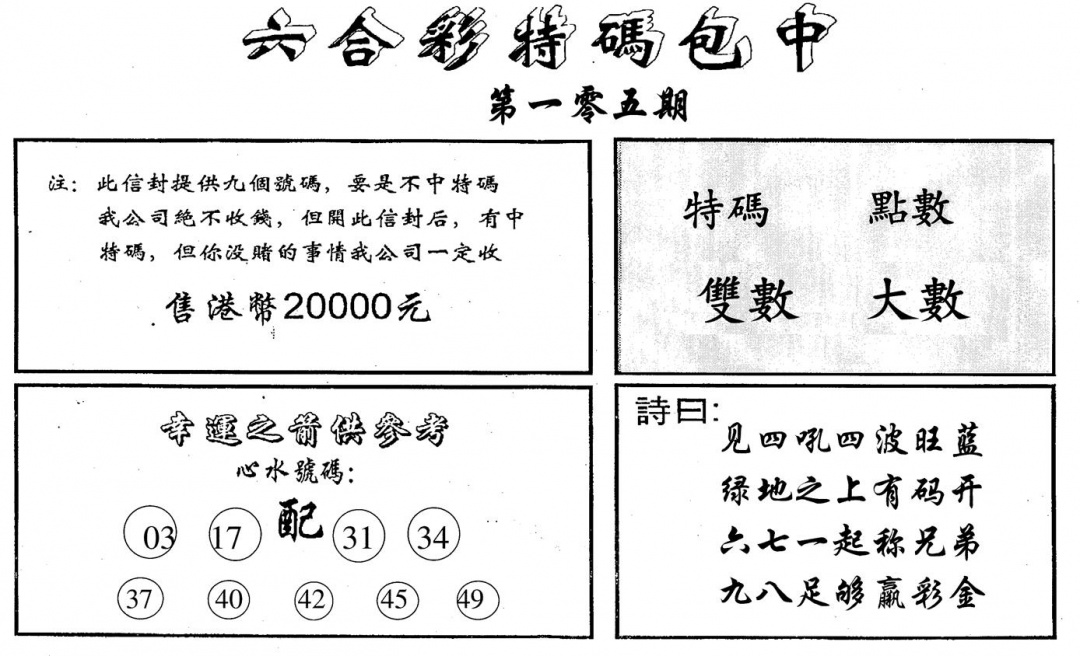 六合彩特碼包中
第一零五期
注：此信封提供九個號碼，要是不中特碼
我公司絕不收錢，但開此信封后，有中
特碼，但你没賭的事情我公司一定收
售港幣20000元
特碼 點數
雙數 大數
幸運之箭供參考
心水號碼：
03 17 配 31 34
37 40 42 45 49
詩曰：
见四吼四波旺蓝
绿地之上有码开
六七一起称兄弟
九八足够赢彩金